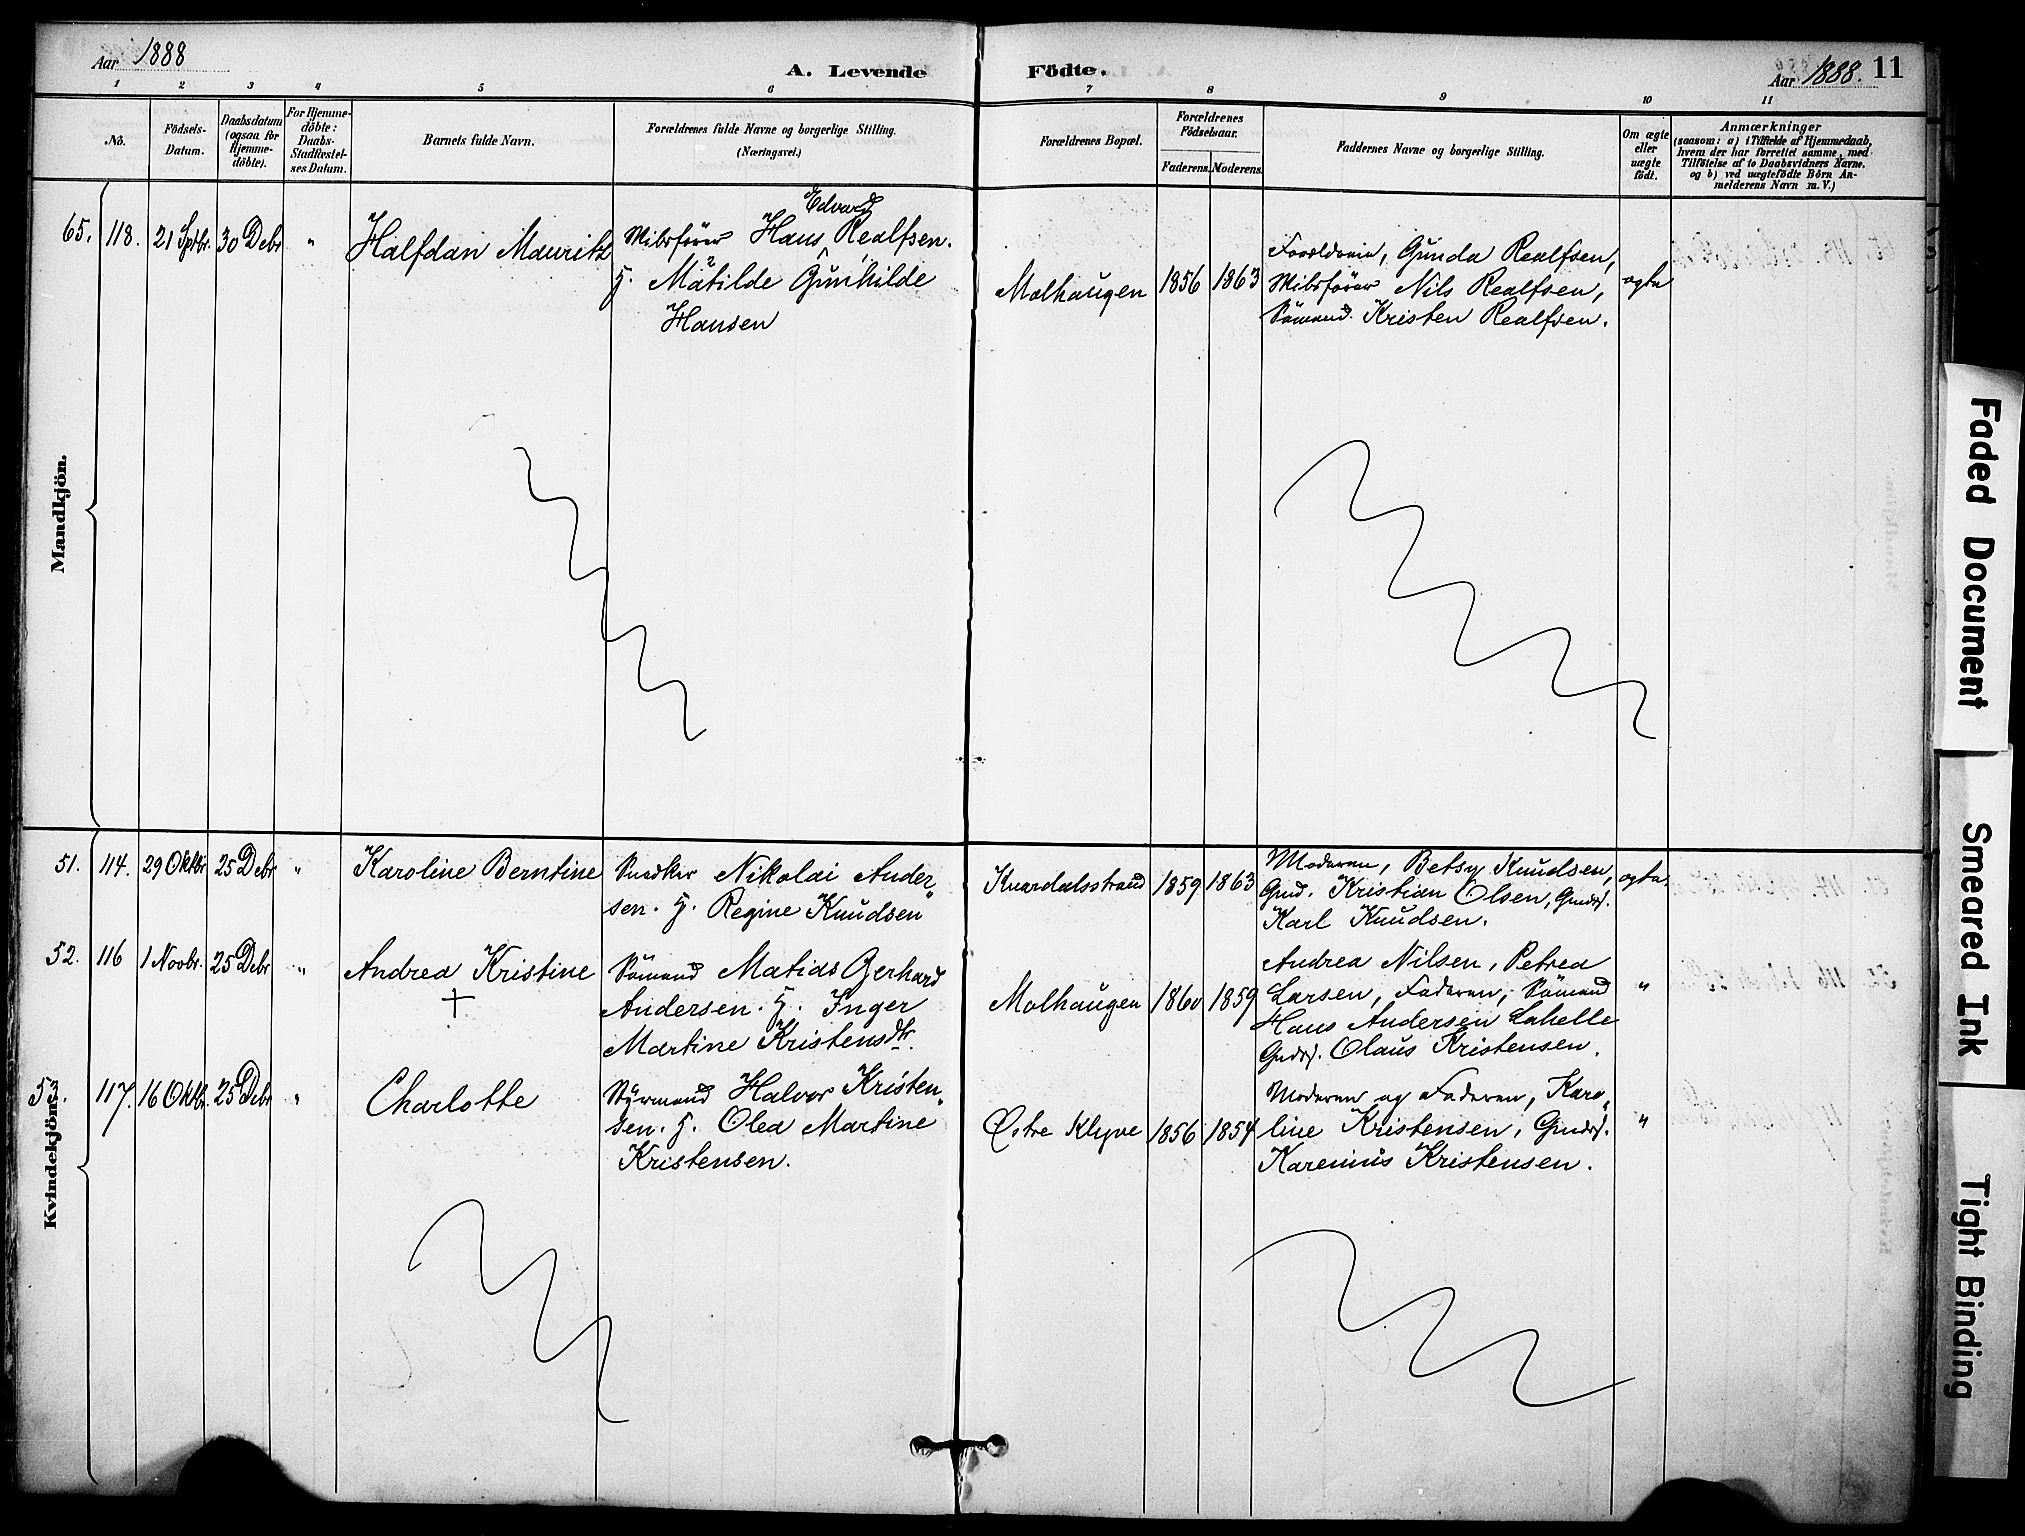 Aar 1888
A. Levende Födte.
Aar 1888. 11
1 2 3 4 5 6 7 8 9 10 11
No.
Födsels-Datum.
Daabsdatum (ogsaa for Hjemme-döbte).
For Hjemme-döbte: Daabs-Stadfæstel-ses Datum.
Barnets fulde Navn.
Forældrenes fulde Navne og borgerlige Stilling.
(Næringsvei.)
Forældrenes Bopæl.
Forældrenes Födselsaar.
Faderens. Moderens.
Faddernes Navne og borgerlige Stilling.
Om ægte eller uægte födt.
Anmærkninger
(saasom: a) i Tilfælde af Hjemmedaab,
hvem der har forrettet samme, med
Tilföielse af to Daabsvidners Navne,
og b) ved uægtefödte Börn An-
melderens Navn m. V.)
Mandkjön.
65. 118. 21 Sptbr. 30 Debr " Halfdan Mauritz
Edvard
Hans Realfsen.
G. Matilde Gunhilde
Hansen
Molhaugen 1856 1863
Gunda Realfsen,
Nils Realfsen,
Sömand. Kristen Realfsen.
ægte
Kvindekjön.
51. 114. 29 Oktbr 25 Debr " Karoline Berntine
Snedker Nikolai Ander„
sen. G. Regine Knudsen
Knardalsstrand 1859 1863
Moderen, Betsy Knudsen,
Gmd. Kristian Olsen, Gmds.
Karl Knudsen.
ægte.
52. 116 1 Novbr. 25 Debr " Andrea Kristine
+
Sömand Matias Gerhard
Andersen. G. Inger
Martine Kristensdtr.
Molhaugen 1860 1859
Andrea Nilsen, Petrea
Larsen, Faderen, Sömand
Hans Andersen Lahelle
Gmds. Olaus Kristensen.
"
53. 117. 16 Oktb. 25 Debr " Charlotte
Styrmand Halvor Kristen„
sen. G. Olea Martine
Kristensen.
Østre Klyve 1856 1854
Moderen og Faderen, Karo„
line Kristensen, Gmds.
Karenius Kristensen.
"
Faded Document
Smeared Ink
Tight Binding